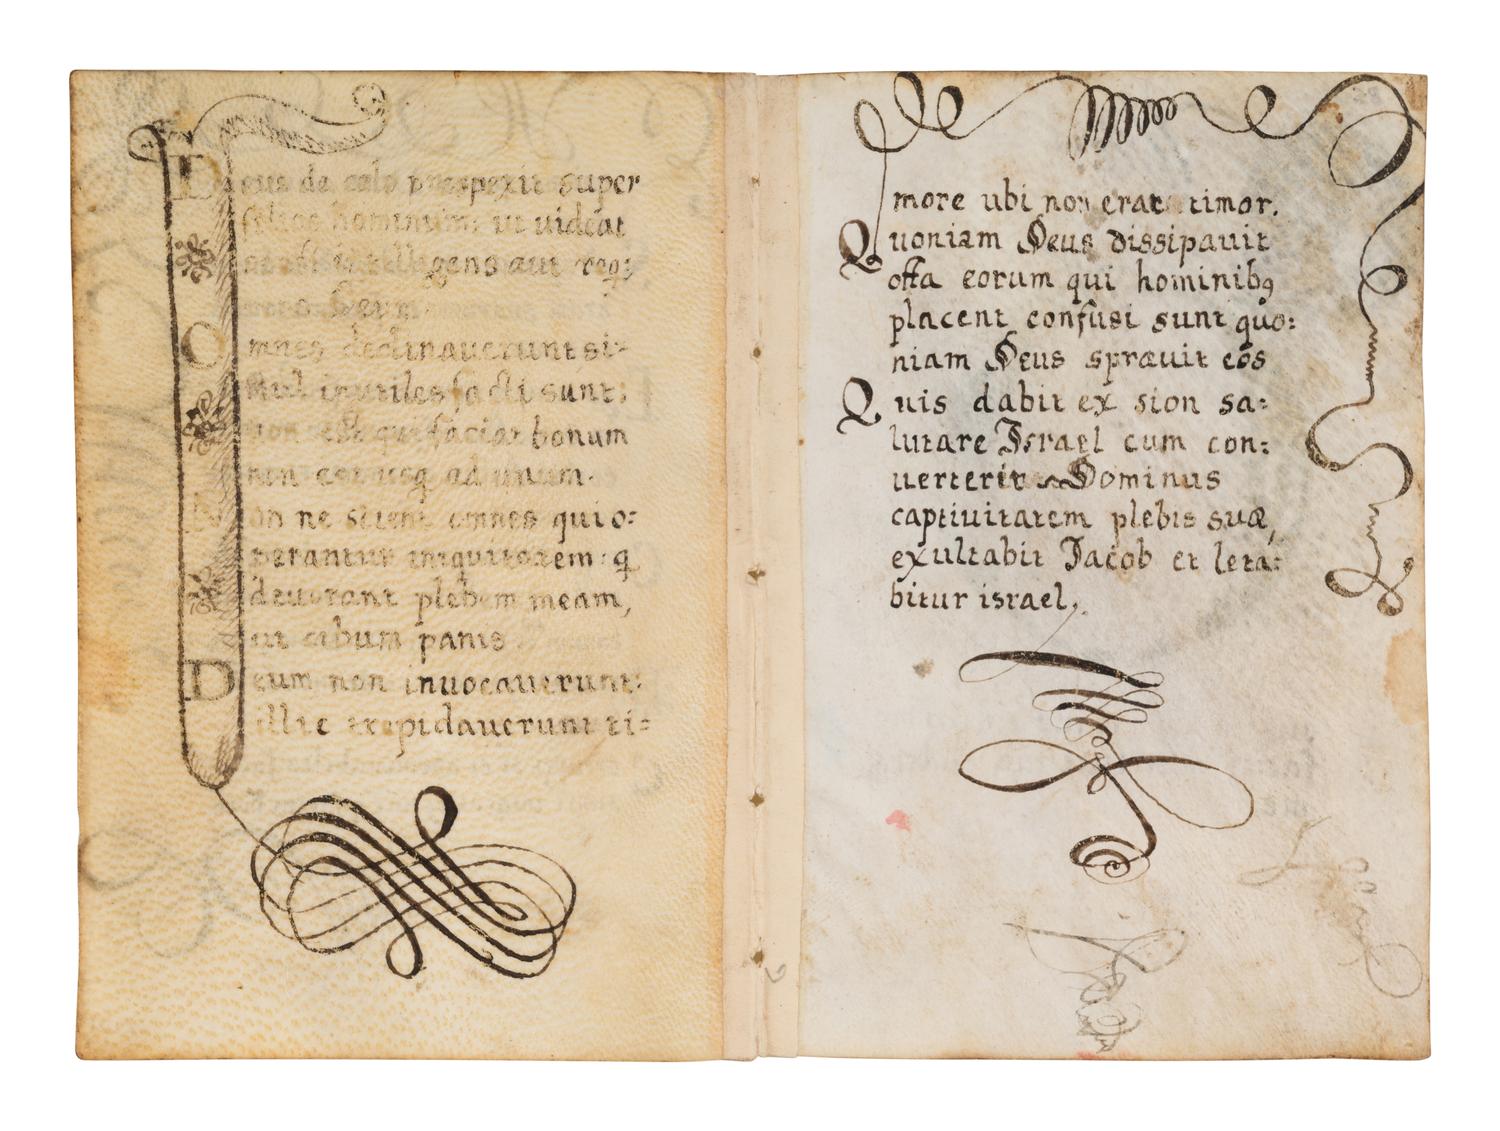 Deus de celo prospexit super
filios hominum: ut uideat
si est intelligens aut req:
rens Deum
Omnes declinauerunt si=
mul inutiles facti sunt:
non est qui faciat bonum
non est usq ad unum.
Non ne scient omnes qui o:
perantur iniquitatem: q
deuorant plebem meam,
ut cibum panis
Deum non inuocauerunt:
illic trepidauerunt ti=
more ubi non erat timor.
Quoniam Deus dissipauit
ossa eorum qui hominibꝯ
placent confusi sunt quo:
niam Deus spræuit eos
Quis dabit ex sion sa=
lutare Israel cum con:
uerterit Dominus
captiuitatem plebis suæ,
exultabit Jacob et leta:
bitur israel,